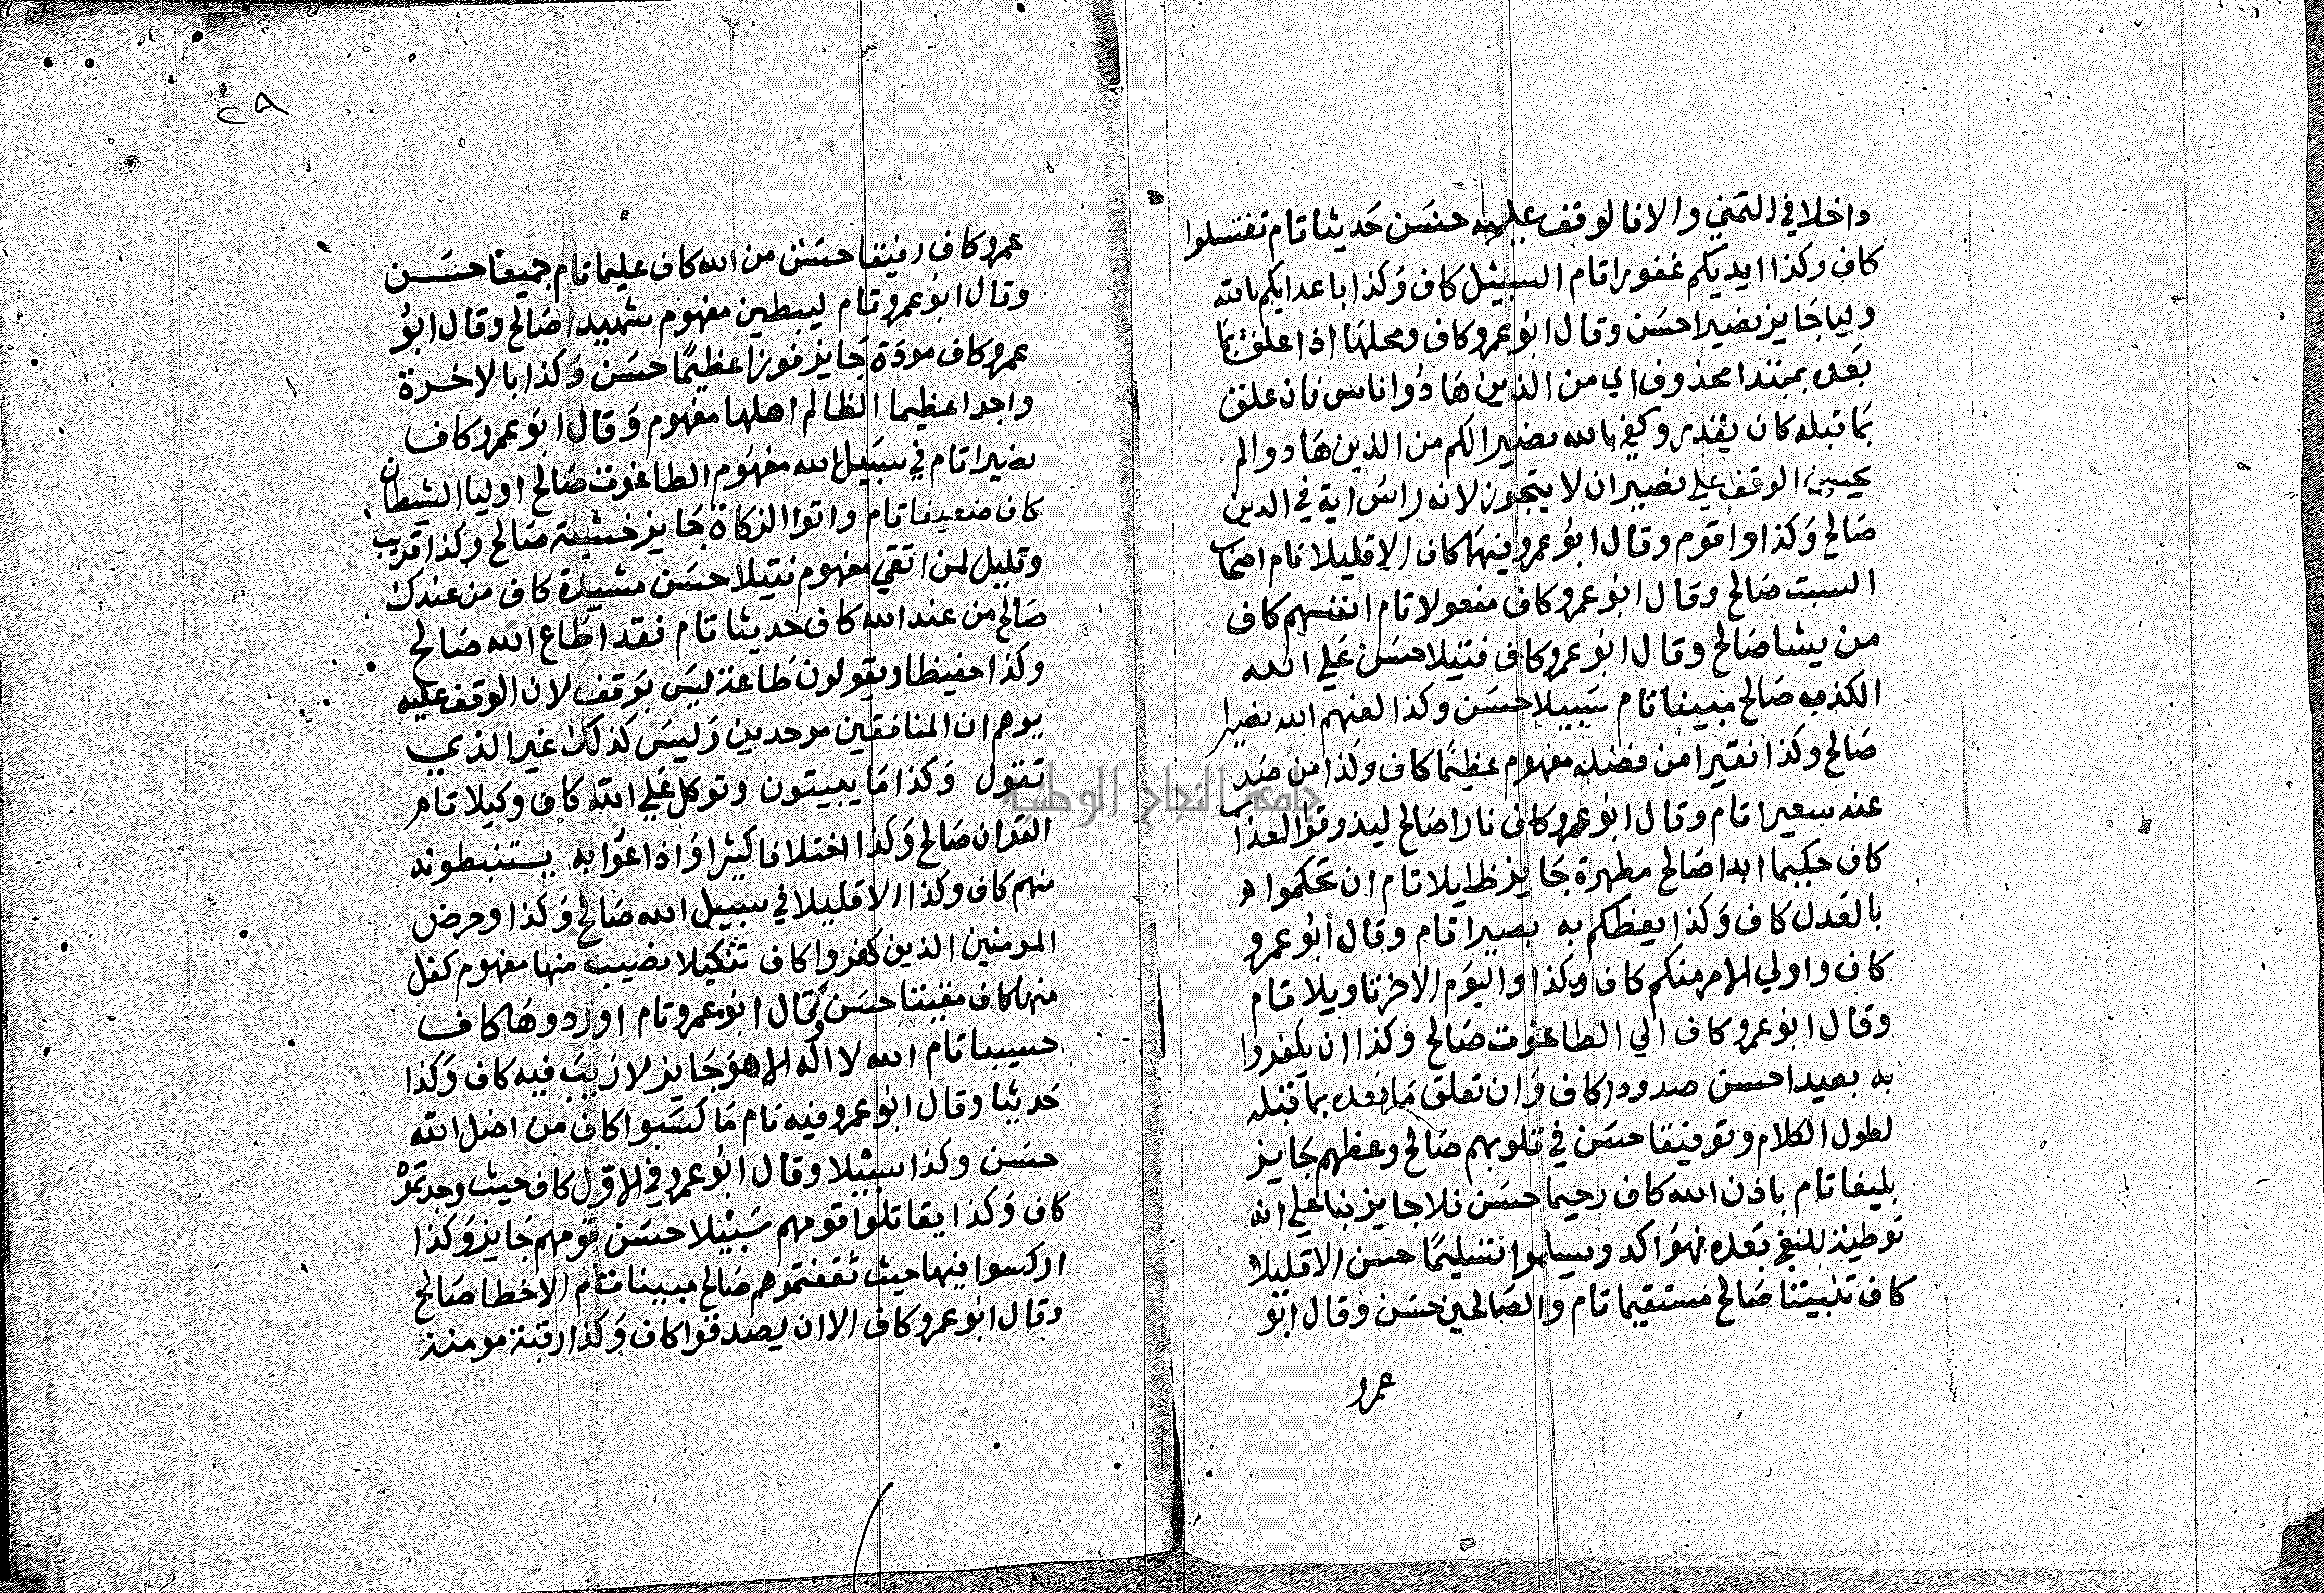 داخلا في التمني والا فالوقف عليه حسن حديثا تام تغتسلوا
كاف وكذا ايديكم غفورا تام السبيل كاف وكذا باعدايكم بالله
وليا جايز نصيرا حسن وقال ابو عمرو كاف ومحلها اذا علق بما
بعده بمبتدا محذوف اي من الذين هادوا ناس فان علق
بما قبله كان يقدر وكفي بالله نصيرا لكم من الذين هادوا لم
يحسن الوقف علي نصيرا ان لا يتجوز لانه راس اية في الدين
صالح وكذا واقوم وقال ابو عمرو فيهما كاف الا قليلا تام اصحاب
السبت صالح وقال ابو عمرو كاف مفعولا تام انفسهم كاف
من يشا صالح وقال ابو عمرو كاف فتيلا حسن علي الله
الكذب صالح مبينا تام سبيلا حسن وكذا لعنهم الله نصيرا
صالح وكذا نقيرا من فضله مفهوم عظيما كاف وكذا من صد
عنه سعيرا تام وقال ابو عمرو كاف نارا صالح ليذوقوا العذاب
كاف حكيما ابدا صالح مطهرة جايز ظليلا تام ان تحكموا
بالعدل كاف وكذا يعظكم به بصيرا تام وقال ابو عمرو
كاف واولي الامر منكم كاف وكذا واليوم الاخر تاويلا تام
وقال ابو عمرو كاف الي الطاغوت صالح وكذا ان يكفروا
به بعيدا حسن صدودا كاف وان تعلق ما بعده بما قبله
لطول الكلام وتوفيقا حسن في قلوبهم صالح وعظهم جايز
بليغا تام باذن الله كاف رحيما حسن فلا جايز بنا علي انه
توطية للنفي بعده فهو اكد ويسلموا تسليما حسن الا قليلا
كاف تثبيتا صالح مستقيما تام والصالحين حسن وقال ابو
عمرو
٢٨
عمرو كاف رفيقا حسن من الله كاف عليما تام جميعا حسن
وقال ابو عمرو تام ليبطين مفهوم شهيدا صالح وقال ابو
عمرو كاف مودة جايز فوزا عظيما حسن وكذا بالاخرة
واجرا عظيما الظالم اهلها مفهوم وقال ابو عمرو كاف
نصيرا تام في سبيل الله مفهوم الطاغوت صالح اوليا الشيطان
كاف ضعيفا تام واتوا الزكاة جايز خشية صالح وكذا قريب
وقليل لمن اتقي مفهوم فتيلا حسن مشيدة كاف من عندك
صالح من عند الله كاف حديثا تام فقد اطاع الله صالح
وكذا حفيظا ويقولون طاعة ليس بوقف لان الوقف عليه
يوهم ان المنافقين موحدين وليس كذلك غير الذي
تقول وكذا ما يبيتون وتوكل علي الله كاف وكيلا تام
القران صالح وكذا اختلافا كثيرا واذاعوا به يستنبطونه
منهم كاف وكذا الا قليلا في سبيل الله صالح وكذا وحرض
المومنين الذين كفروا كاف تنكيلا نصيب منها مفهوم كفل
منها كاف مقيتا حسن وقال ابو عمرو تام او ردوها كاف
حسيبا تام الله لا اله الا هو جايز لا ريب فيه كاف وكذا
حديثا وقال ابو عمرو فيه تام ما كسبوا كاف من اضل الله
حسن وكذا سبيلا وقال ابو عمرو في الاول كاف حيث وجدتموهم
كاف وكذا يقاتلوا قومهم سبيلا حسن قومهم جايز وكذا
اركسوا فيها حيث ثقفتموهم صالح مبينا تام الا خطا صالح
وقال ابو عمرو كاف الا ان يصدقوا كاف وكذا رقبة مومنة
جامعة النجاح الوطنية